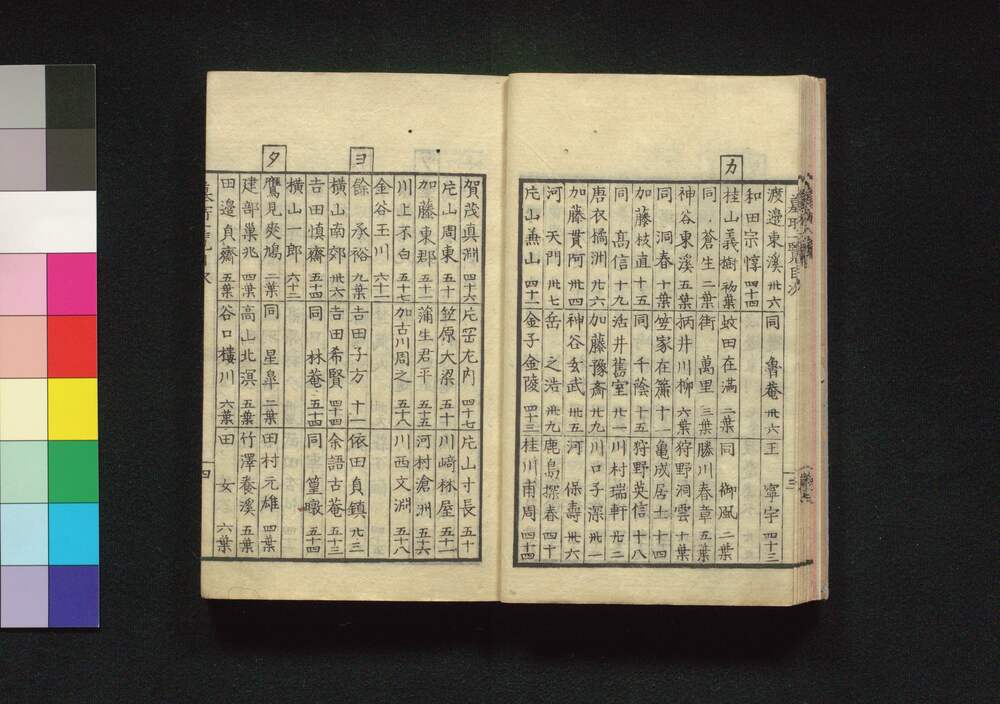 渡邉東溪 卅六 同 魯菴 卅六 王 寧宇 四十三
和田宗惇 四十四
カ
桂山義樹 初葉 蚊田在滿 二葉 同 御風 二葉
同 蒼生 二葉 街 萬里 三葉 勝川春章 五葉
神谷東溪 五葉 柄井川柳 六葉 狩野洞雲 十葉
同 洞春 十葉 笠家在簾 十一 亀成居士 十四
加藤枝直 十五 同 千蔭 十五 狩野英信 十八
同 高信 十九 浩井舊室 廿一 川村瑞軒 廿二
唐衣橘洲 廿六 加藤豫斎 廿九 川口子深 卅一
加藤貫阿 卅四 神谷玄武 卅五 河 保壽 卅六
河 天門 卅七 岳 之浩 卅九 鹿島探春 四十一
片山兼山 四十二 金子金陵 四十三 桂川甫周 四十四
三
賀茂真淵 四十六 片岡左内 四十七 片山寸長 五十
片山周東 五十 笠原大梁 五十 川﨑林屋 五十一
加藤東郡 五十一 蒲生君平 五十五 河村滄洲 五十六
川上不白 五十七 加古川周之 五十八 川西文淵 五十八
金谷玉川 六十一
ヨ
餘 承裕 九葉 吉田子方 十一 依田貞鎮 廿三
横山南郊 卅六 吉田希賢 四十四 余語古菴 五十三
吉田慎齋 五十四 同 林菴 五十四 同 篁墩 五十四
横山一郎 六十二
タ
鷹見爽鳩 二葉 同 星皐 二葉 田村元雄 四葉
建部巣兆 四葉 高山北溟 五葉 竹澤養溪 五葉
田邉貞齋 五葉 谷口樓川 六葉 田 女 六葉
四